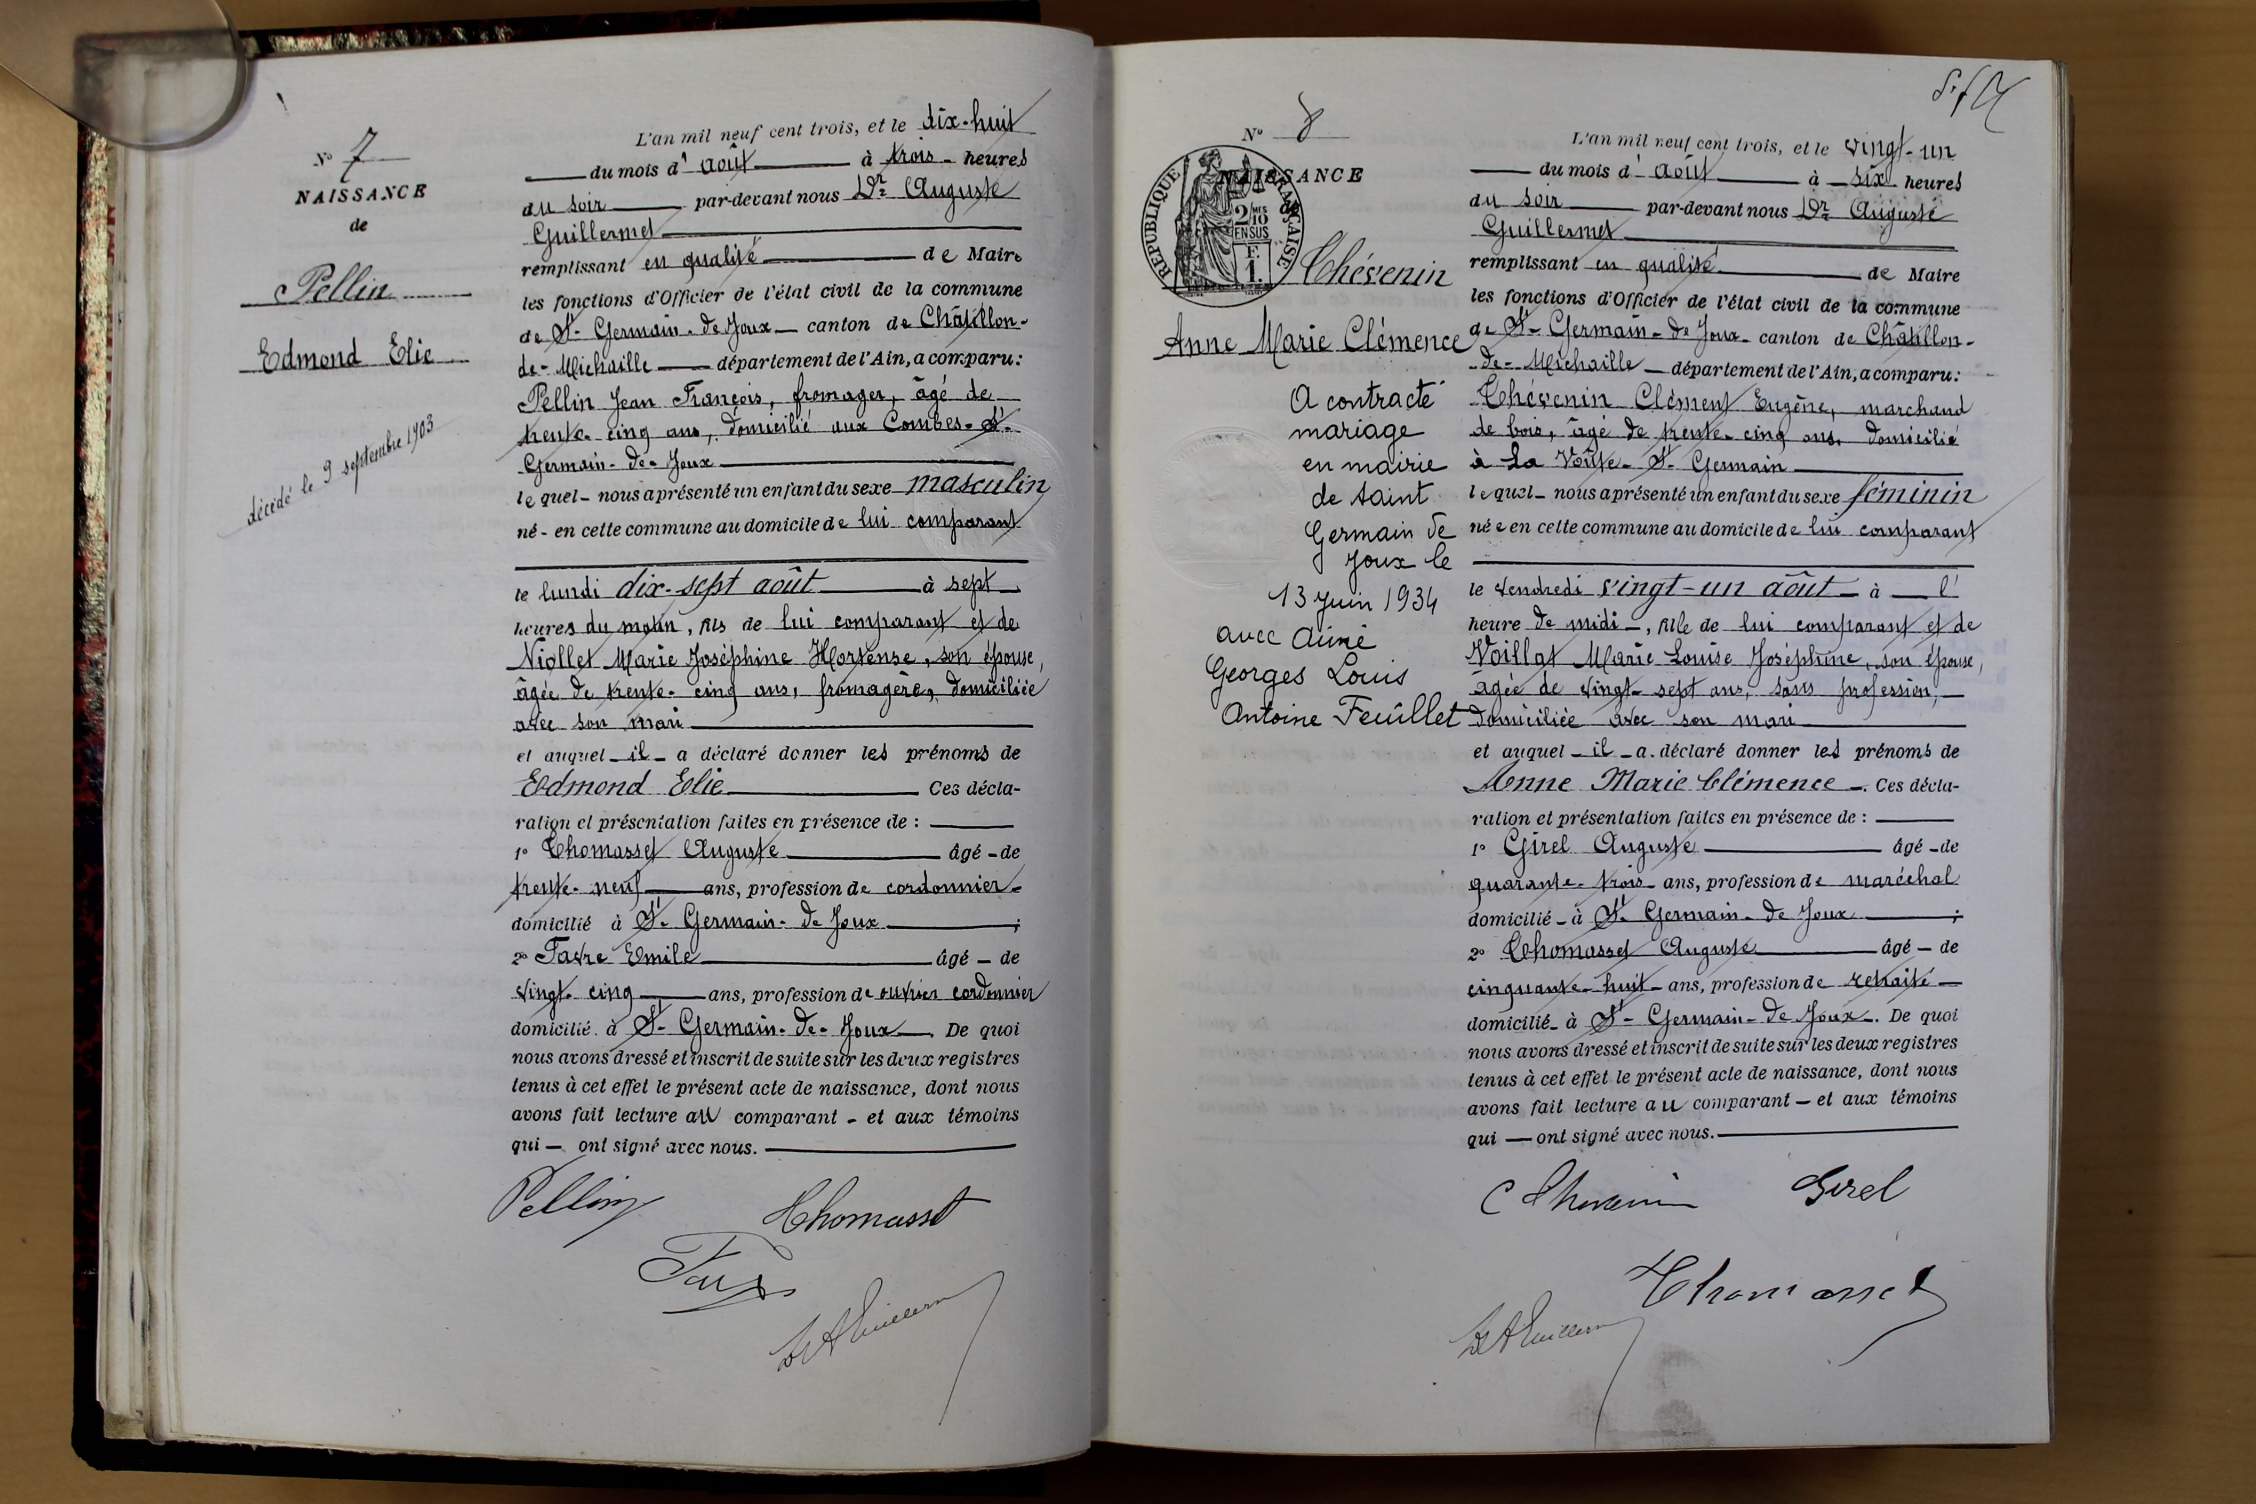 N° 7
NAISSANCE
de
Pellin
Edmond Elie
décédé le 9 septembre 1903
L'an mil neuf cent trois, et le dix-huit
du mois d' août à trois heures
du soir par-devant nous Dr Auguste
Guillermet
remplissant en qualité de Maire
les fonctions d'Officier de l'état civil de la commune
de St-Germain-de-Joux canton de Châtillon-
de-Michaille département de l'Ain, a comparu:
Pellin Jean François, fromager, âgé de
trente-cinq ans, domicilié aux Combes-St-
Germain-de-Joux
lequel nous a présenté un enfant du sexe masculin
né en cette commune au domicile de lui comparant
le lundi dix-sept août à sept
heures du matin, fils de lui comparant et de
Niollet Marie Joséphine Hortense, son épouse,
âgée de trente-cinq ans, fromagère, domiciliée
avec son mari
et auquel il a déclaré donner les prénoms de
Edmond Elie Ces décla-
ration et présentation faites en présence de :
1° Thomasset Auguste âgé de
trente-neuf ans, profession de cordonnier
domicilié à St-Germain-de-Joux ;
2° Favre Emile âgé de
vingt-cinq ans, profession de ouvrier cordonnier
domicilié à St-Germain-de-Joux. De quoi
nous avons dressé et inscrit de suite sur les deux registres
tenus à cet effet le présent acte de naissance, dont nous
avons fait lecture au comparant et aux témoins
qui ont signé avec nous.
Pellin
Thomasset
Favre
Dr A Guillermet
N° 8
NAISSANCE
de
REPUBLIQUE FRANÇAISE
2/10 MES
EN SUS
F.
1.
Thévenin
Anne Marie Clémence
A contracté
mariage
en mairie
de Saint
Germain de
Joux le
13 Juin 1934
avec Aimé
Georges Louis
Antoine Feuillet
L'an mil neuf cent trois, et le vingt-un
du mois d' août à six heures
du soir par-devant nous Dr Auguste
Guillermet
remplissant en qualité de Maire
les fonctions d'Officier de l'état civil de la commune
de St-Germain-de-Joux canton de Châtillon-
de-Michaille département de l'Ain, a comparu:
Thévenin Clément Eugène, marchand
de bois, âgé de trente-cinq ans, domicilié
à La Voûte-St-Germain
lequel nous a présenté un enfant du sexe féminin
née en cette commune au domicile de lui comparant
le vendredi vingt-un août à l'
heure de midi, fille de lui comparant et de
Voillat Marie Louise Joséphine, son épouse,
âgée de vingt-sept ans, sans profession,
domiciliée avec son mari
et auquel il a déclaré donner les prénoms de
Anne Marie Clémence. Ces décla-
ration et présentation faites en présence de :
1° Girel Auguste âgé de
quarante-trois ans, profession de maréchal
domicilié à St-Germain-de-Joux ;
2° Thomasset Auguste âgé de
cinquante-huit ans, profession de retraité
domicilié à St-Germain-de-Joux. De quoi
nous avons dressé et inscrit de suite sur les deux registres
tenus à cet effet le présent acte de naissance, dont nous
avons fait lecture au comparant et aux témoins
qui ont signé avec nous.
C Thevenin
Girel
Thomasset
Dr A Guillermet